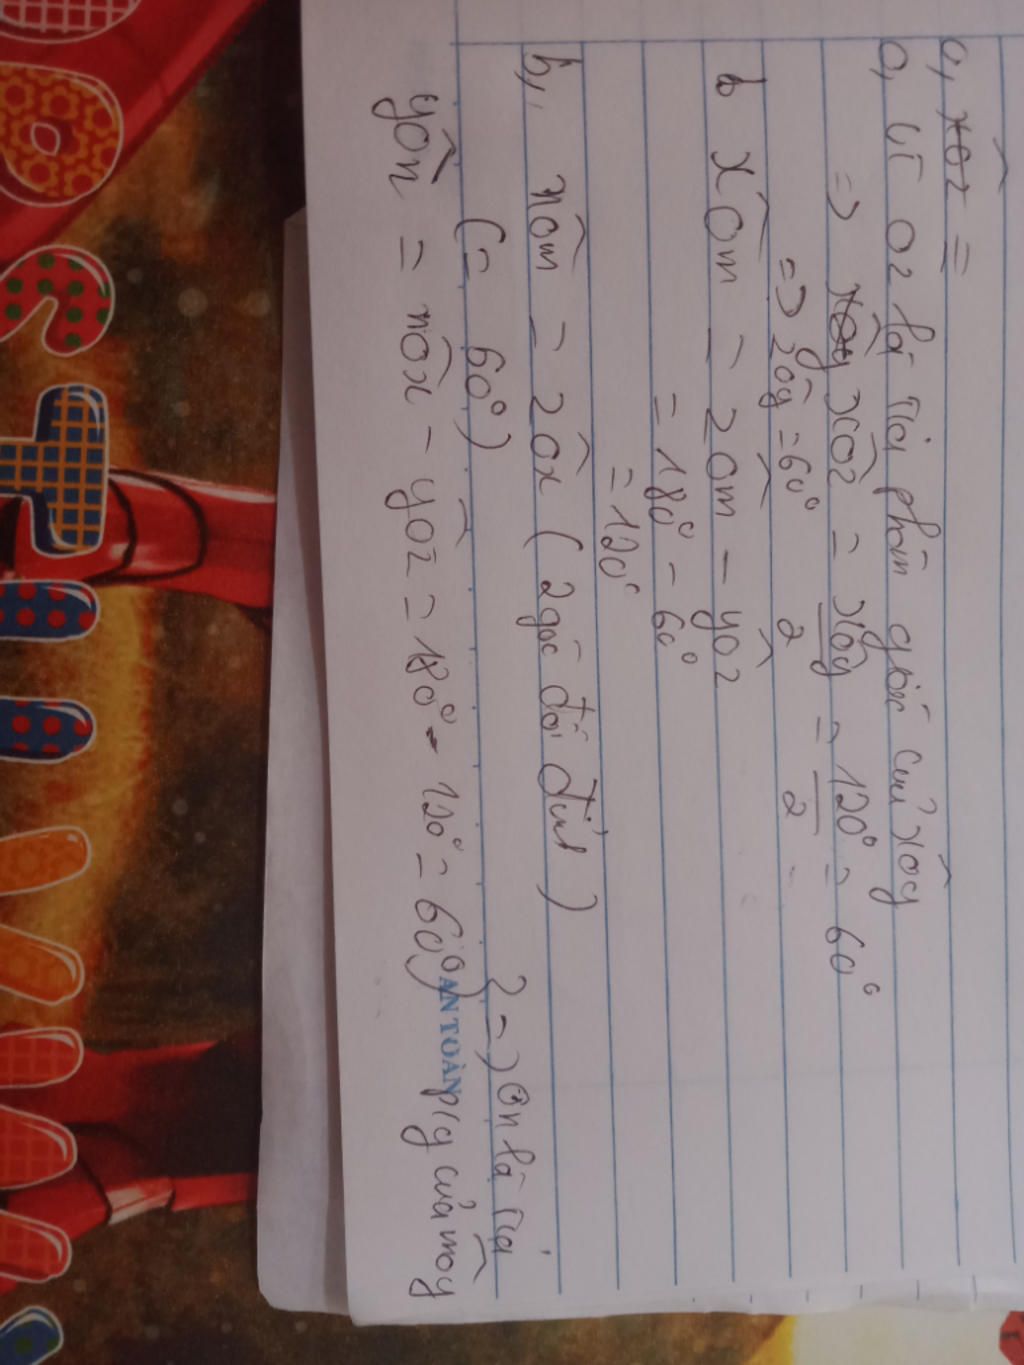 a, x̂oz =
a, vì oz là tia phân giác của xôy
=> xôz = xôy/2 = 120°/2 = 60°
=> zôy = 60°
b xôm = zôm - yôz
= 180° - 60°
= 120°
b, nôm = zôx (2 góc đối đỉnh)
(= 60°)
yôn = nôx - yôz = 180° - 120° = 60°)
} => On là tia
p/g của môy
AN TOÀN